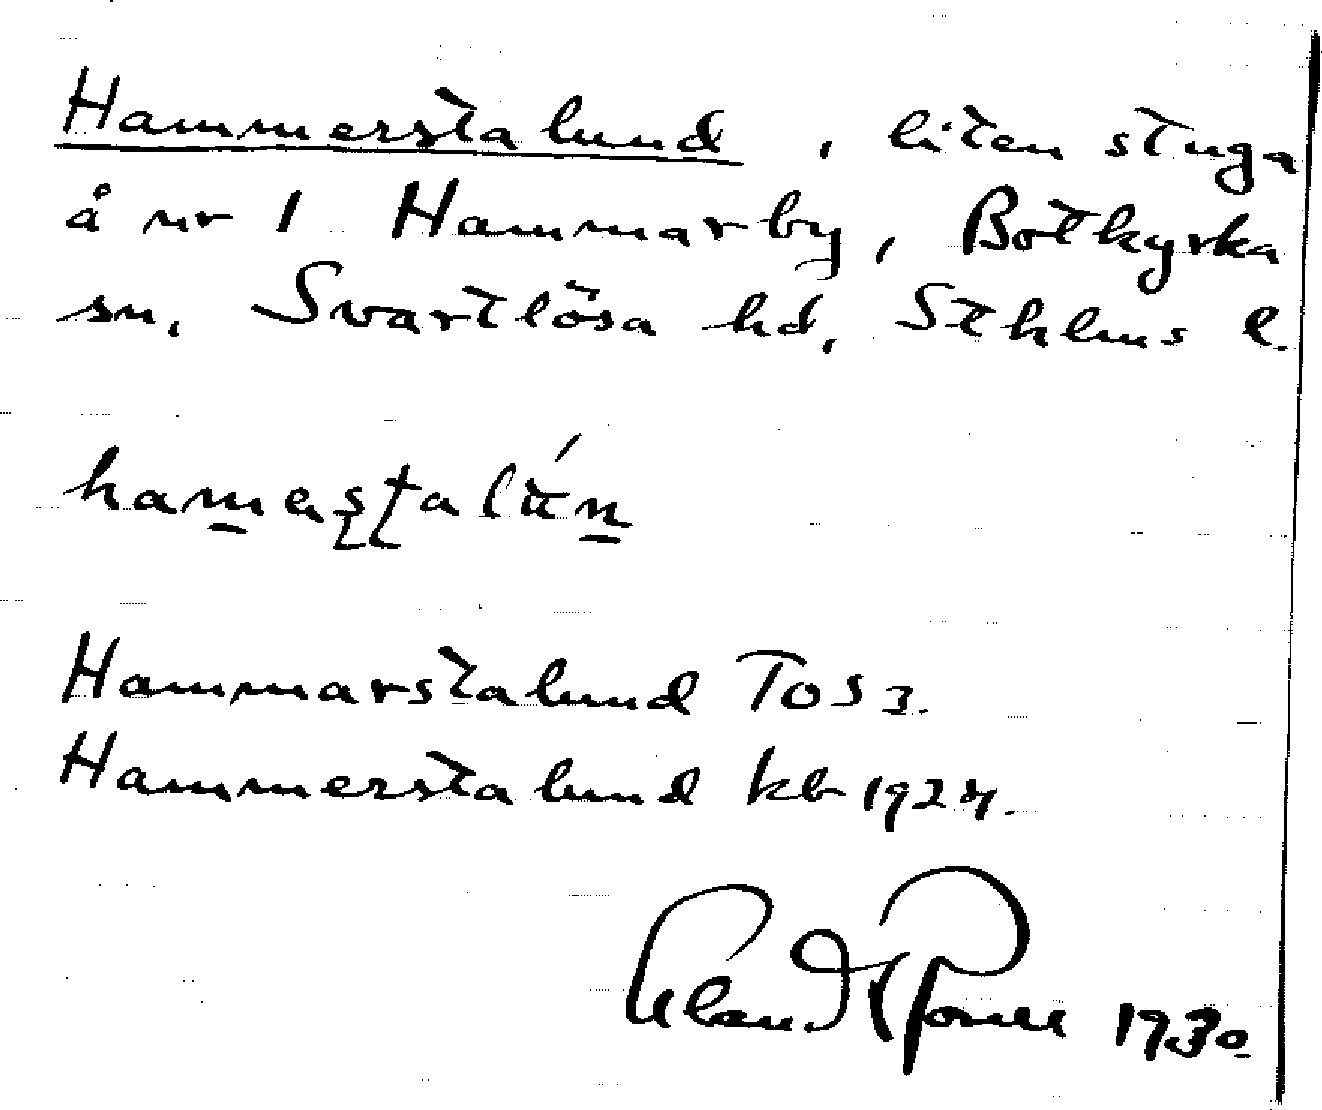 Hammerstalund, liten stuga
å nr 1 Hammarby, Botkyrka
sn, Svartlösa hd, Sthlms l.
Hammarstalund TOS 3.
Hammerstalund kb 1924.
1930.